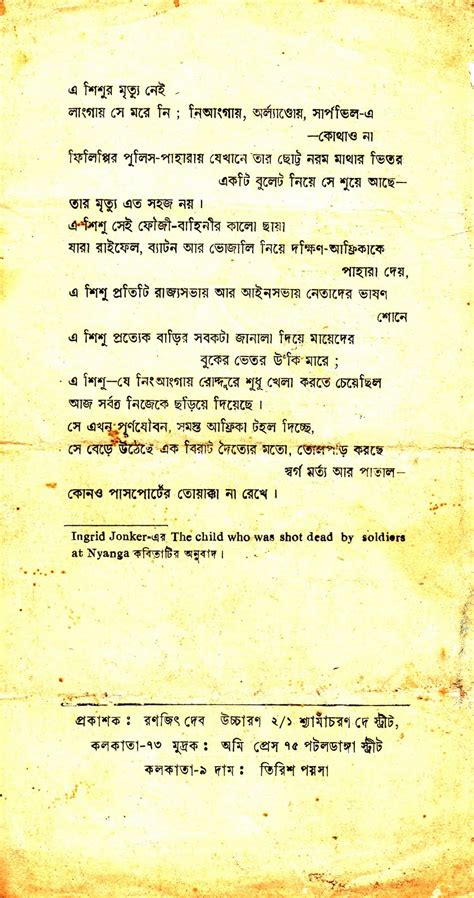 এ শিশুর মৃত্যু নেই
লাংগায় সে মরে নি ; নিআংগায়, অর্ল্যাণ্ডোয়, সার্পভিল-এ
—কোথাও না
ফিলিপ্পির পুলিস-পাহারায় যেখানে তার ছোট্ট নরম মাথার ভিতর
একটি বুলেট নিয়ে সে শুয়ে আছে—
তার মৃত্যু এত সহজ নয় ।
এ শিশু সেই ফৌজী-বাহিনীর কালো ছায়া
যারা রাইফেল, ব্যাটন আর ভোজালি নিয়ে দক্ষিণ-আফ্রিকাকে
পাহারা দেয়,
এ শিশু প্রতিটি রাজ্যসভায় আর আইনসভায় নেতাদের ভাষণ
শোনে
এ শিশু প্রত্যেক বাড়ির সবকটা জানালা দিয়ে মায়েদের
বুকের ভেতর উঁকি মারে ;
এ শিশু—যে নিংআংগায় রোদ্দুরে শুধু খেলা করতে চেয়েছিল
আজ সর্বত্র নিজেকে ছড়িয়ে দিয়েছে ।
সে এখন পূর্ণযৌবন, সমস্ত আফ্রিকা টহল দিচ্ছে,
সে বেড়ে উঠেছে এক বিরাট দৈত্যের মতো, তোলপাড় করছে
স্বর্গ মর্ত্য আর পাতাল—
কোনও পাসপোর্টের তোয়াক্কা না রেখে ।
Ingrid Jonker-এর The child who was shot dead by soldiers
at Nyanga কবিতাটির অনুবাদ ।
প্রকাশক : রণজিৎ দেব উচ্চারণ ২/১ শ্যামাচরণ দে স্ট্রীট,
কলকাতা-৭৩ মুদ্রক : অমি প্রেস ৭৫ পটলডাঙ্গা স্ট্রীট
কলকাতা-৯ দাম : তিরিশ পয়সা